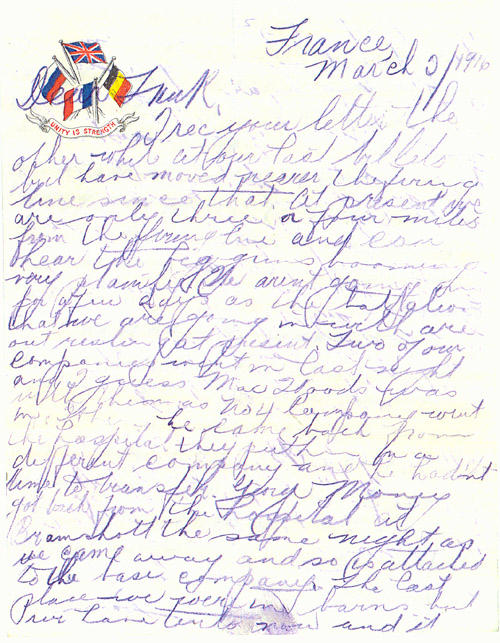 France,
March 3/1916
UNITY IS STRENGTH
Dear Funk,
I rec your letter the
other while at our last billets
but have moved nearer the firing
line since that. At present we
are only three or four miles
from the firing line and can
hear the big guns booming
very plainly. We aren't going in
for a few days as the battalion
that we are going in with are
out resting at present. Two of our
companies went in last night
and I guess Mac was
in with them as No 4 Company went
he came back from
the hospital they put him in a
different company and he hadn't
time to transfer. Money
got back from the Hospital at
Bramshott the same night as
we came away and so is attached
to the base company. The last
place we were in barns but
we have tents now and it